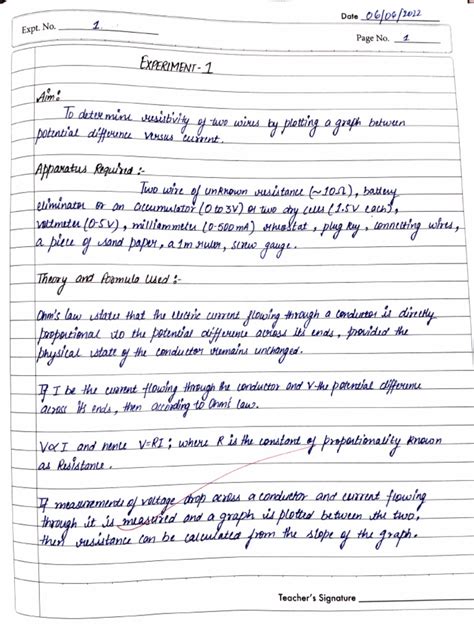 Date 06/06/2022
Expt. No. 1
Page No. 1
EXPERIMENT-1
Aim:
To determine resistivity of two wires by plotting a graph between
potential difference versus current.
Apparatus Required :-
Two wire of unknown resistance (~10Ω), battery
eliminator or an accumulator (0 to 3V) or two dry cells (1.5V each),
voltmeter (0-5V), milliammeter (0-500mA) rheostat, plug key, connecting wires,
a piece of sand paper, a 1m ruler, screw gauge.
Theory and Formula Used :-
Ohm's law states that the electric current flowing through a conductor is directly
proportional to the potential difference across its ends, provided the
physical state of the conductor remains unchanged.
If I be the current flowing through the conductor and V the potential difference
across its ends, then according to Ohm's law.
V∝I and hence V=RI ; where R is the constant of proportionality known
as Resistance.
If measurements of voltage drop across a conductor and current flowing
through it is measured and a graph is plotted between the two,
then resistance can be calculated from the slope of the graph.
Teacher's Signature